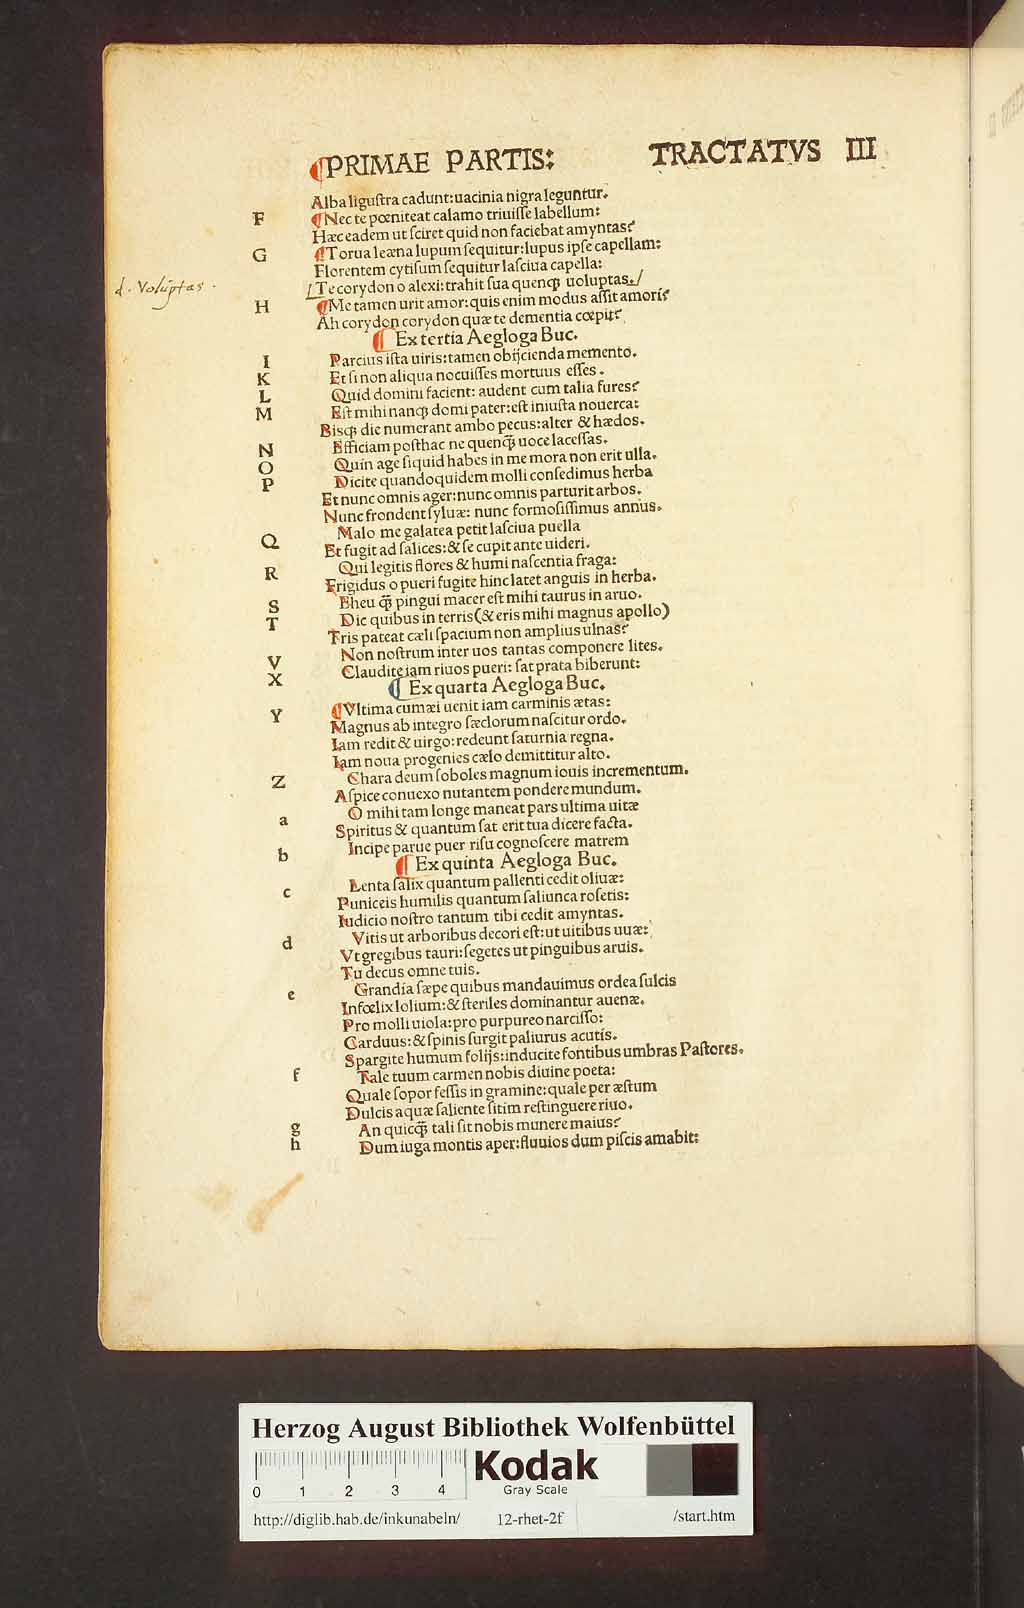 ¶PRIMAE PARTIS: TRACTATVS III
Alba liguſtra cadunt:uacinia nigra leguntur.
F ¶Nec te pœniteat calamo triuiſſe labellum:
Hæc eadem ut ſciret quid non faciebat amyntas?
G ¶Torua leæna lupum ſequitur:lupus ipſe capellam:
Florentem cytiſum ſequitur laſciua capella:
d. Voluptas. Te corydon o alexi:trahit ſua quenq̃ uoluptas.
H ¶Me tamen urit amor:quis enim modus aſſit amori?
Ah corydon corydon quæ te dementia cœpit?
¶ Ex tertia Aegloga Buc.
I Parcius iſta uiris:tamen obijcienda memento.
K Et ſi non aliqua nocuiſſes mortuus eſſes.
L Quid domini facient: audent cum talia fures?
M Eſt mihi nanq; domi pater:eſt iniuſta nouerca:
Biſq; die numerant ambo pecus:alter & hædos.
N Efficiam poſthac ne quenq̃ uoce laceſſas.
O Quin age ſiquid habes in me mora non erit ulla.
P Dicite quandoquidem molli conſedimus herba
Et nunc omnis ager:nunc omnis parturit arbos.
Nunc frondent ſyluæ: nunc formoſiſſimus annus.
Q Malo me galatea petit laſciua puella
Et fugit ad ſalices:& ſe cupit ante uideri.
R Qui legitis flores & humi naſcentia fraga:
Frigidus o pueri fugite hinc latet anguis in herba.
S Eheu q̃ pingui macer eſt mihi taurus in aruo.
T Dic quibus in terris(& eris mihi magnus apollo)
Tris pateat cæli ſpacium non amplius ulnas?
V Non noſtrum inter uos tantas componere lites.
X Claudite iam riuos pueri: ſat prata biberunt:
¶ Ex quarta Aegloga Buc.
Y ¶Vltima cumæi uenit iam carminis ætas:
Magnus ab integro ſæclorum naſcitur ordo.
Iam redit & uirgo:redeunt ſaturnia regna.
Iam noua progenies cælo demittitur alto.
Z Chara deum ſoboles magnum iouis incrementum.
Aſpice conuexo nutantem pondere mundum.
a O mihi tam longe maneat pars ultima uitæ
Spiritus & quantum ſat erit tua dicere facta.
b Incipe parue puer riſu cognoſcere matrem
¶ Ex quinta Aegloga Buc.
c Lenta ſalix quantum pallenti cedit oliuæ:
Puniceis humilis quantum ſaliunca roſetis:
Iudicio noſtro tantum tibi cedit amyntas.
d Vitis ut arboribus decori eſt:ut uitibus uuæ:
Vt gregibus tauri:ſegetes ut pinguibus aruis.
Tu decus omne tuis.
e Grandia ſæpe quibus mandauimus ordea ſulcis
Infœlix lolium:& ſteriles dominantur auenæ.
Pro molli uiola:pro purpureo narciſſo:
Carduus:& ſpinis ſurgit paliurus acutis.
Spargite humum folijs:inducite fontibus umbras Paſtores.
f Tale tuum carmen nobis diuine poeta:
Quale ſopor feſſis in gramine:quale per æſtum
Dulcis aquæ ſaliente ſitim reſtinguere riuo.
g An quicq̃ tali ſit nobis munere maius?
h Dum iuga montis aper:fluuios dum piſcis amabit:
Herzog August Bibliothek Wolfenbüttel
0 1 2 3 4
Kodak
Gray Scale
http://diglib.hab.de/inkunabeln/ 12-rhet-2f /start.htm